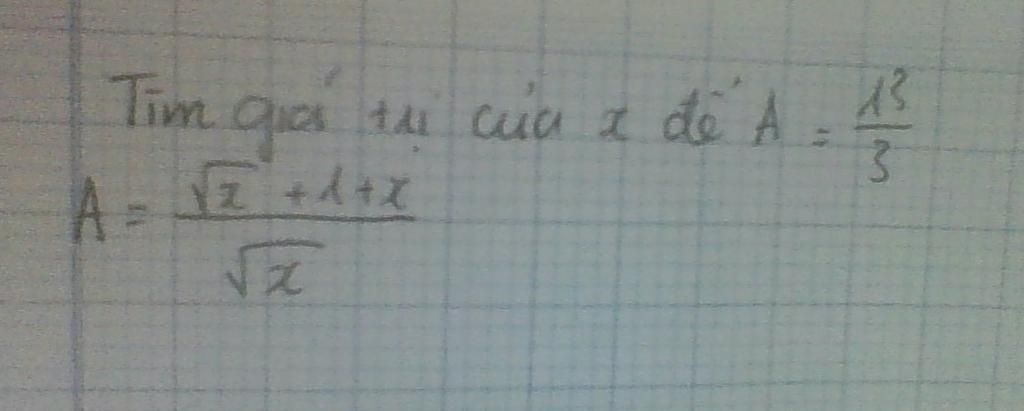 Tìm giá trị của x để A = 13/3
A = (√x + 1 + x)/√x